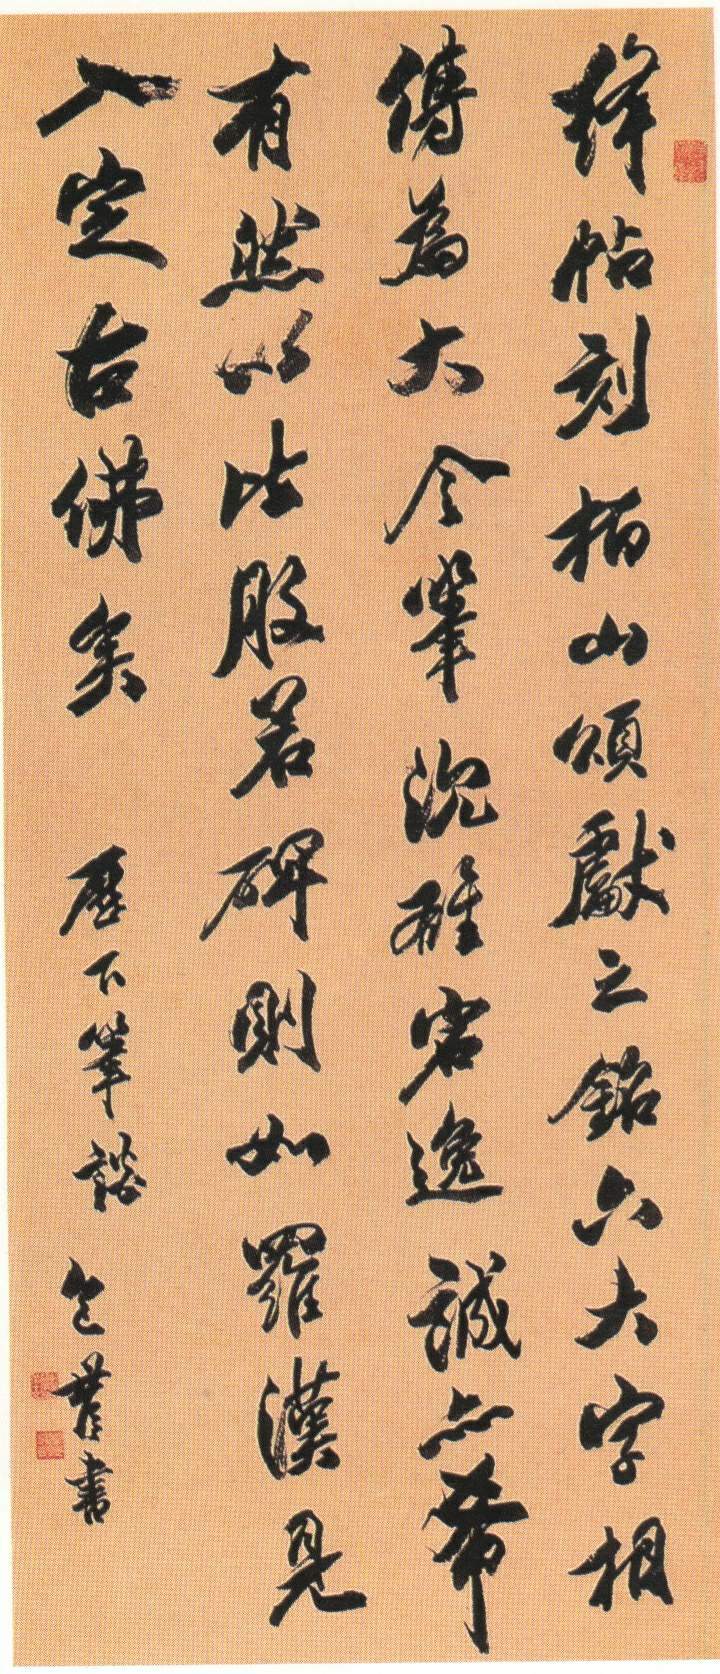 絳帖刻栢山頌獻之銘六大字相
傳為大令筆沉雄宕逸誠亦希
有然以比般若碑則如羅漢見
入定古佛矣 歷下筆談 書